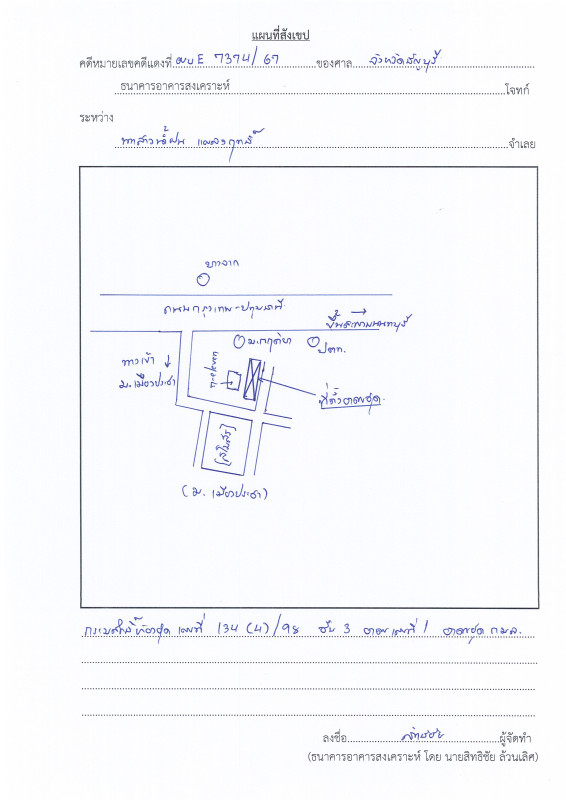 แผนที่สังเขป
คดีหมายเลขคดีแดงที่ ผบE 7374/67 ของศาล จังหวัดธัญบุรี
ธนาคารอาคารสงเคราะห์ โจทก์
ระหว่าง
นางสาวน้ำฝน จำเลย
บางจาก
ถนนกรุงเทพ-ปทุมธานี
ขึ้นสะพานนนทบุรี
ปตท.
ทางเข้า
ม.เมืองประชา
7-eleven
ที่ตั้งอาคารชุด
(สโมสร)
(ม. เมืองประชา)
กรรมสิทธิ์ห้องชุด เลขที่ 134 (4)/98 ชั้น 3 อาคารเลขที่ 1 อาคารชุด กมล.
ลงชื่อ สิทธิชัย ผู้จัดทำ
(ธนาคารอาคารสงเคราะห์ โดย นายสิทธิชัย ล้วนเลิศ)